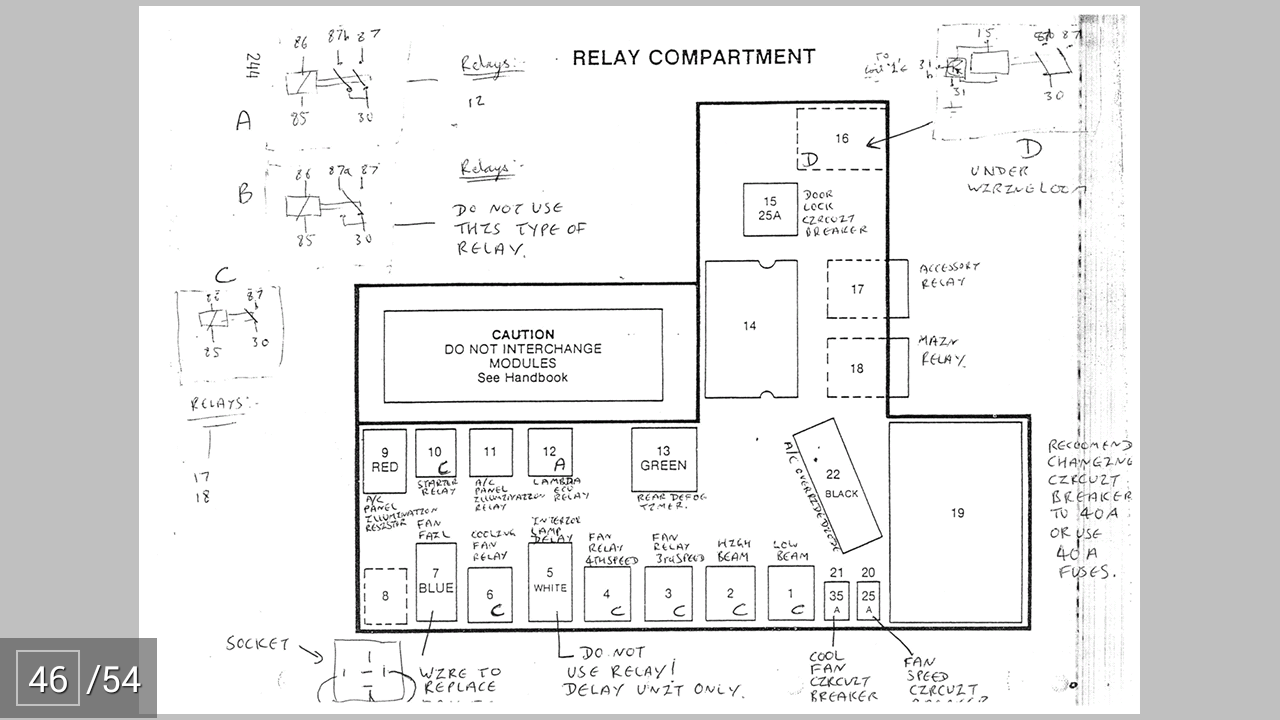 RELAY COMPARTMENT
244
86 87b 87
85 30
A
Relays:-
12
B
86 87a 87
85 30
Relays:-
DO NOT USE
THIS TYPE OF
RELAY.
C
87
30
RELAYS:-
17
18
TO
15
87
31
b
31
30
D
UNDER
16
D
15
25A
DOOR
LOCK
CIRCUIT
BREAKER
14
17
ACCESSORY
RELAY
18
MAIN
RELAY.
CAUTION
DO NOT INTERCHANGE
MODULES
See Handbook
9
RED
A/C
PANEL
ILLUMINATION
RESISTOR
10
C
STARTER
RELAY
11
A/C
PANEL
ILLUMINATION
RELAY
12
A
LAMBDA
ECU
RELAY
13
GREEN
REAR DEFOG
TIMER.
22
BLACK
A/C OVERRIDE DIODE
19
RECOMEND
CHANGING
CIRCUIT
BREAKER
TO 40A
OR USE
40A
FUSES.
8
FAN
FAIL
7
BLUE
COOLING
FAN
RELAY
6
C
INTERIOR
LAMP
DELAY
5
WHITE
FAN
RELAY
4TH SPEED
4
C
FAN
RELAY
3rd SPEED
3
C
HIGH
BEAM
2
C
LOW
BEAM
1
C
21
35
A
20
25
A
SOCKET
WIRE TO
REPLACE
DO NOT
USE RELAY!
DELAY UNIT ONLY.
COOL
FAN
CIRCUIT
BREAKER
FAN
SPEED
CIRCUIT
46 /54